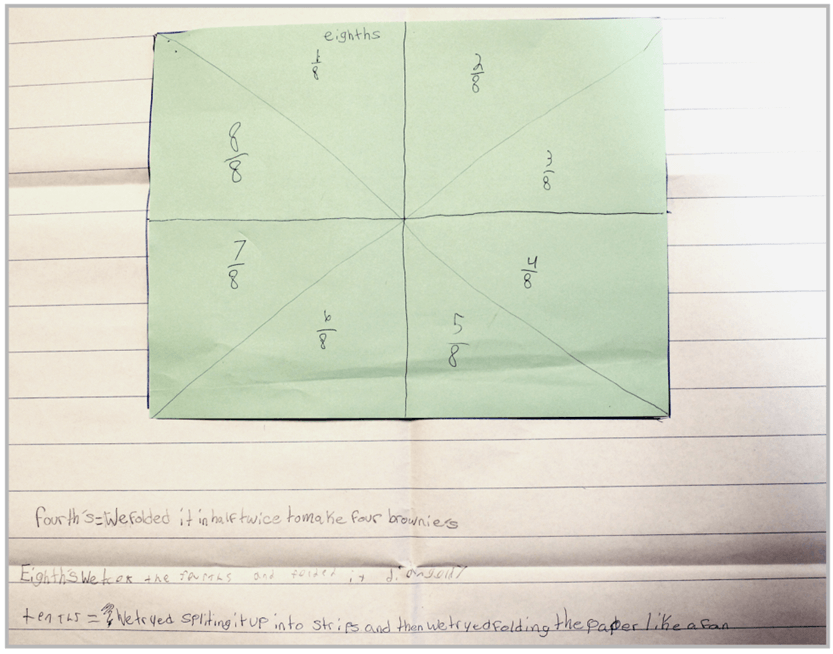 eighths
1/8
2/8
8/8
3/8
7/8
4/8
6/8
5/8
fourth's=We folded it in half twice to make four browniers
Eighth's We took the fourths and folded it
tenths = ? We tryed spliting it up into strips and then we tryed folding the paper like a fan